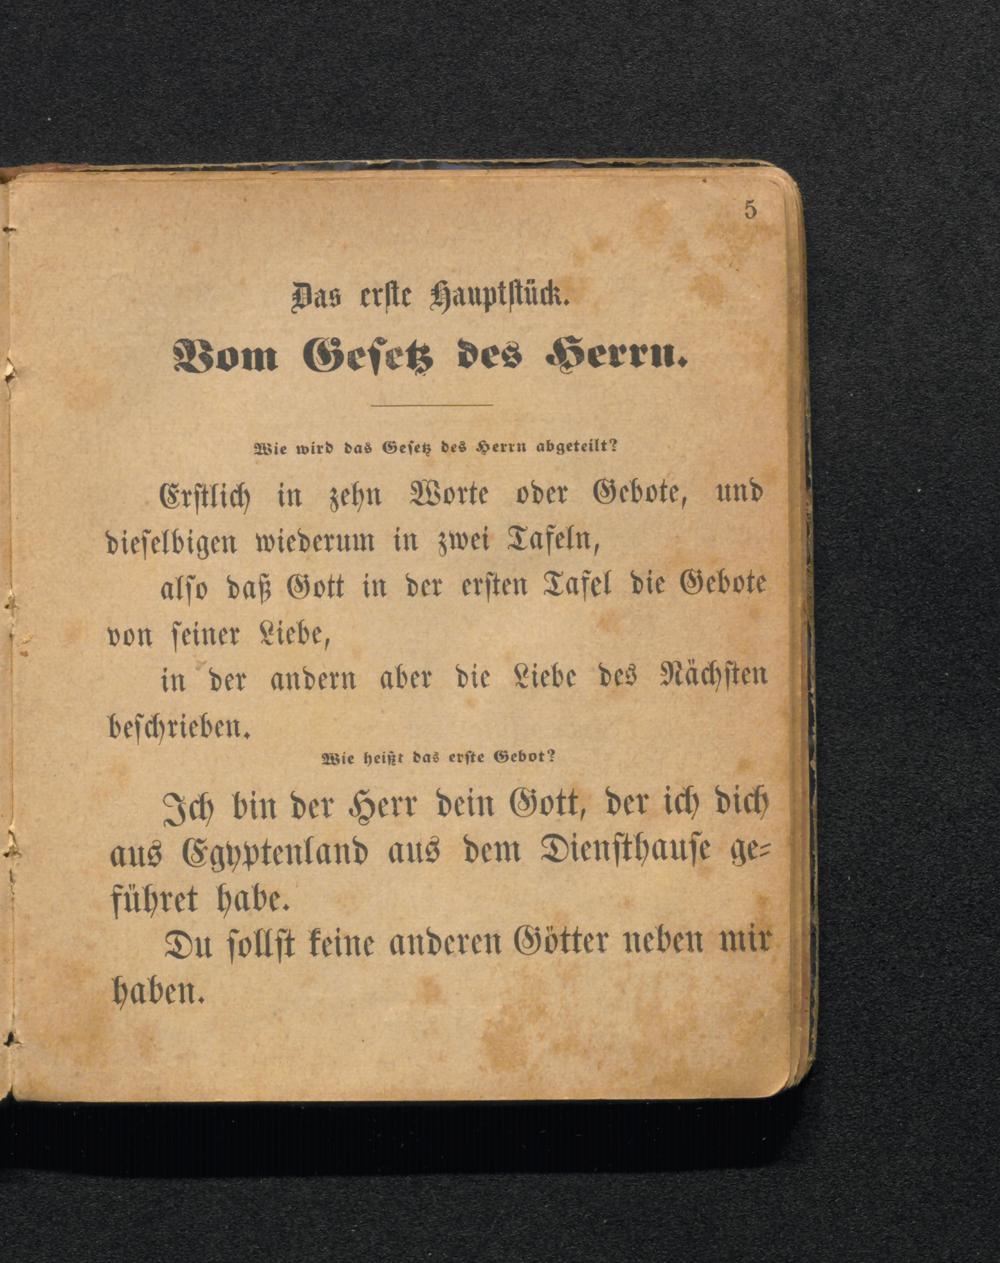 5
Das erste Hauptstück.
Vom Gesetz des Herrn.
Wie wird das Gesetz des Herrn abgeteilt?
Erstlich in zehn Worte oder Gebote, und
dieselbigen wiederum in zwei Tafeln,
also daß Gott in der ersten Tafel die Gebote
von seiner Liebe,
in der andern aber die Liebe des Nächsten
beschrieben.
Wie heißt das erste Gebot?
Ich bin der Herr dein Gott, der ich dich
aus Egyptenland aus dem Diensthause ge-
führet habe.
Du sollst keine anderen Götter neben mir
haben.